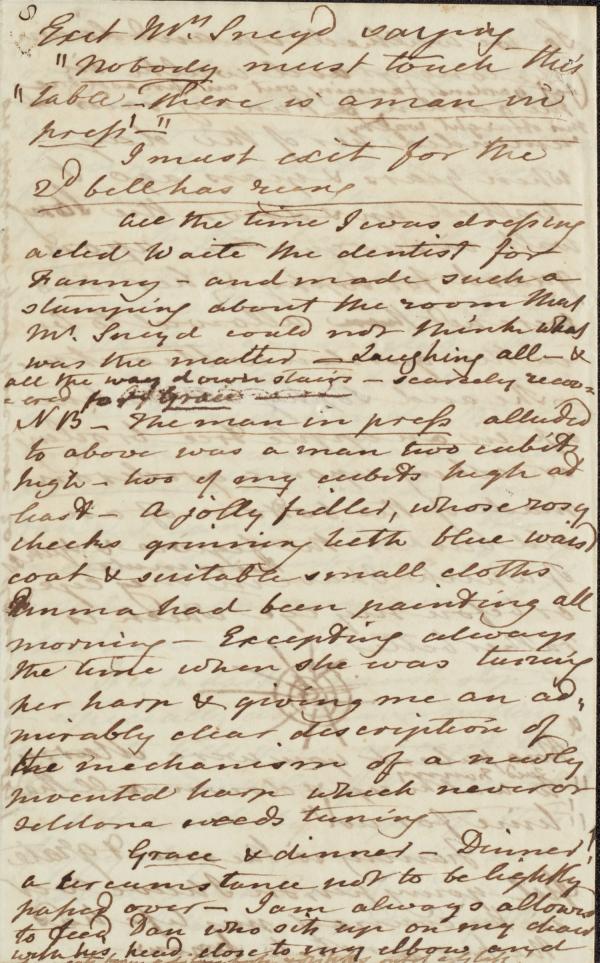 Exit Mrs. Sneyd saying
"Nobody must touch this
"table – There is a man in
press! –"
I must exit for the
2d bell has rung
all the time I was dressing
acted Waite the dentist for
Fanny – and made such a
stamping about the room that
Mr. Sneyd could not think what
was the matter – Laughing all – &
all the way down stairs – scarcely recov=
=ered for Grace
NB – The man in press alluded
to above was a man two cubits
high – two of my cubits high at
least – A jolly fidler, whose rosy
cheeks grinning teeth blue waist
coat & suitable small cloths
Emma had been painting all
morning – Excepting always
the time when she was tuning
her harp & giving me an ad=
mirably clear description of
the mechanism of a newly
invented harp which never or
seldom needs tuning –
Grace & dinner – Dinner!
a circumstance not to be lightly
passed over – I am always allowed
to feed Dan who sits up on my chair
with his head close to my elbow and